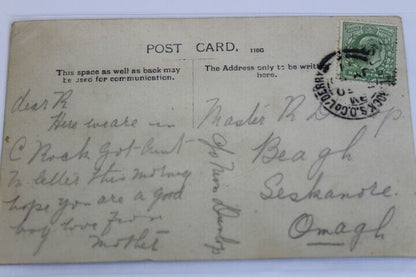 POST CARD.
110G
This space as well as back may
be used for communication.
The Address only to be writ
here.
dear R
Here we are in
C Rock Got Aunt
M letter this morning
hope you are a good
boy love from
Mother
Master R D p
Beagh
Seskanore
Omagh
c/o Miss Dunlop
ROCK S.O. CO. DERRY